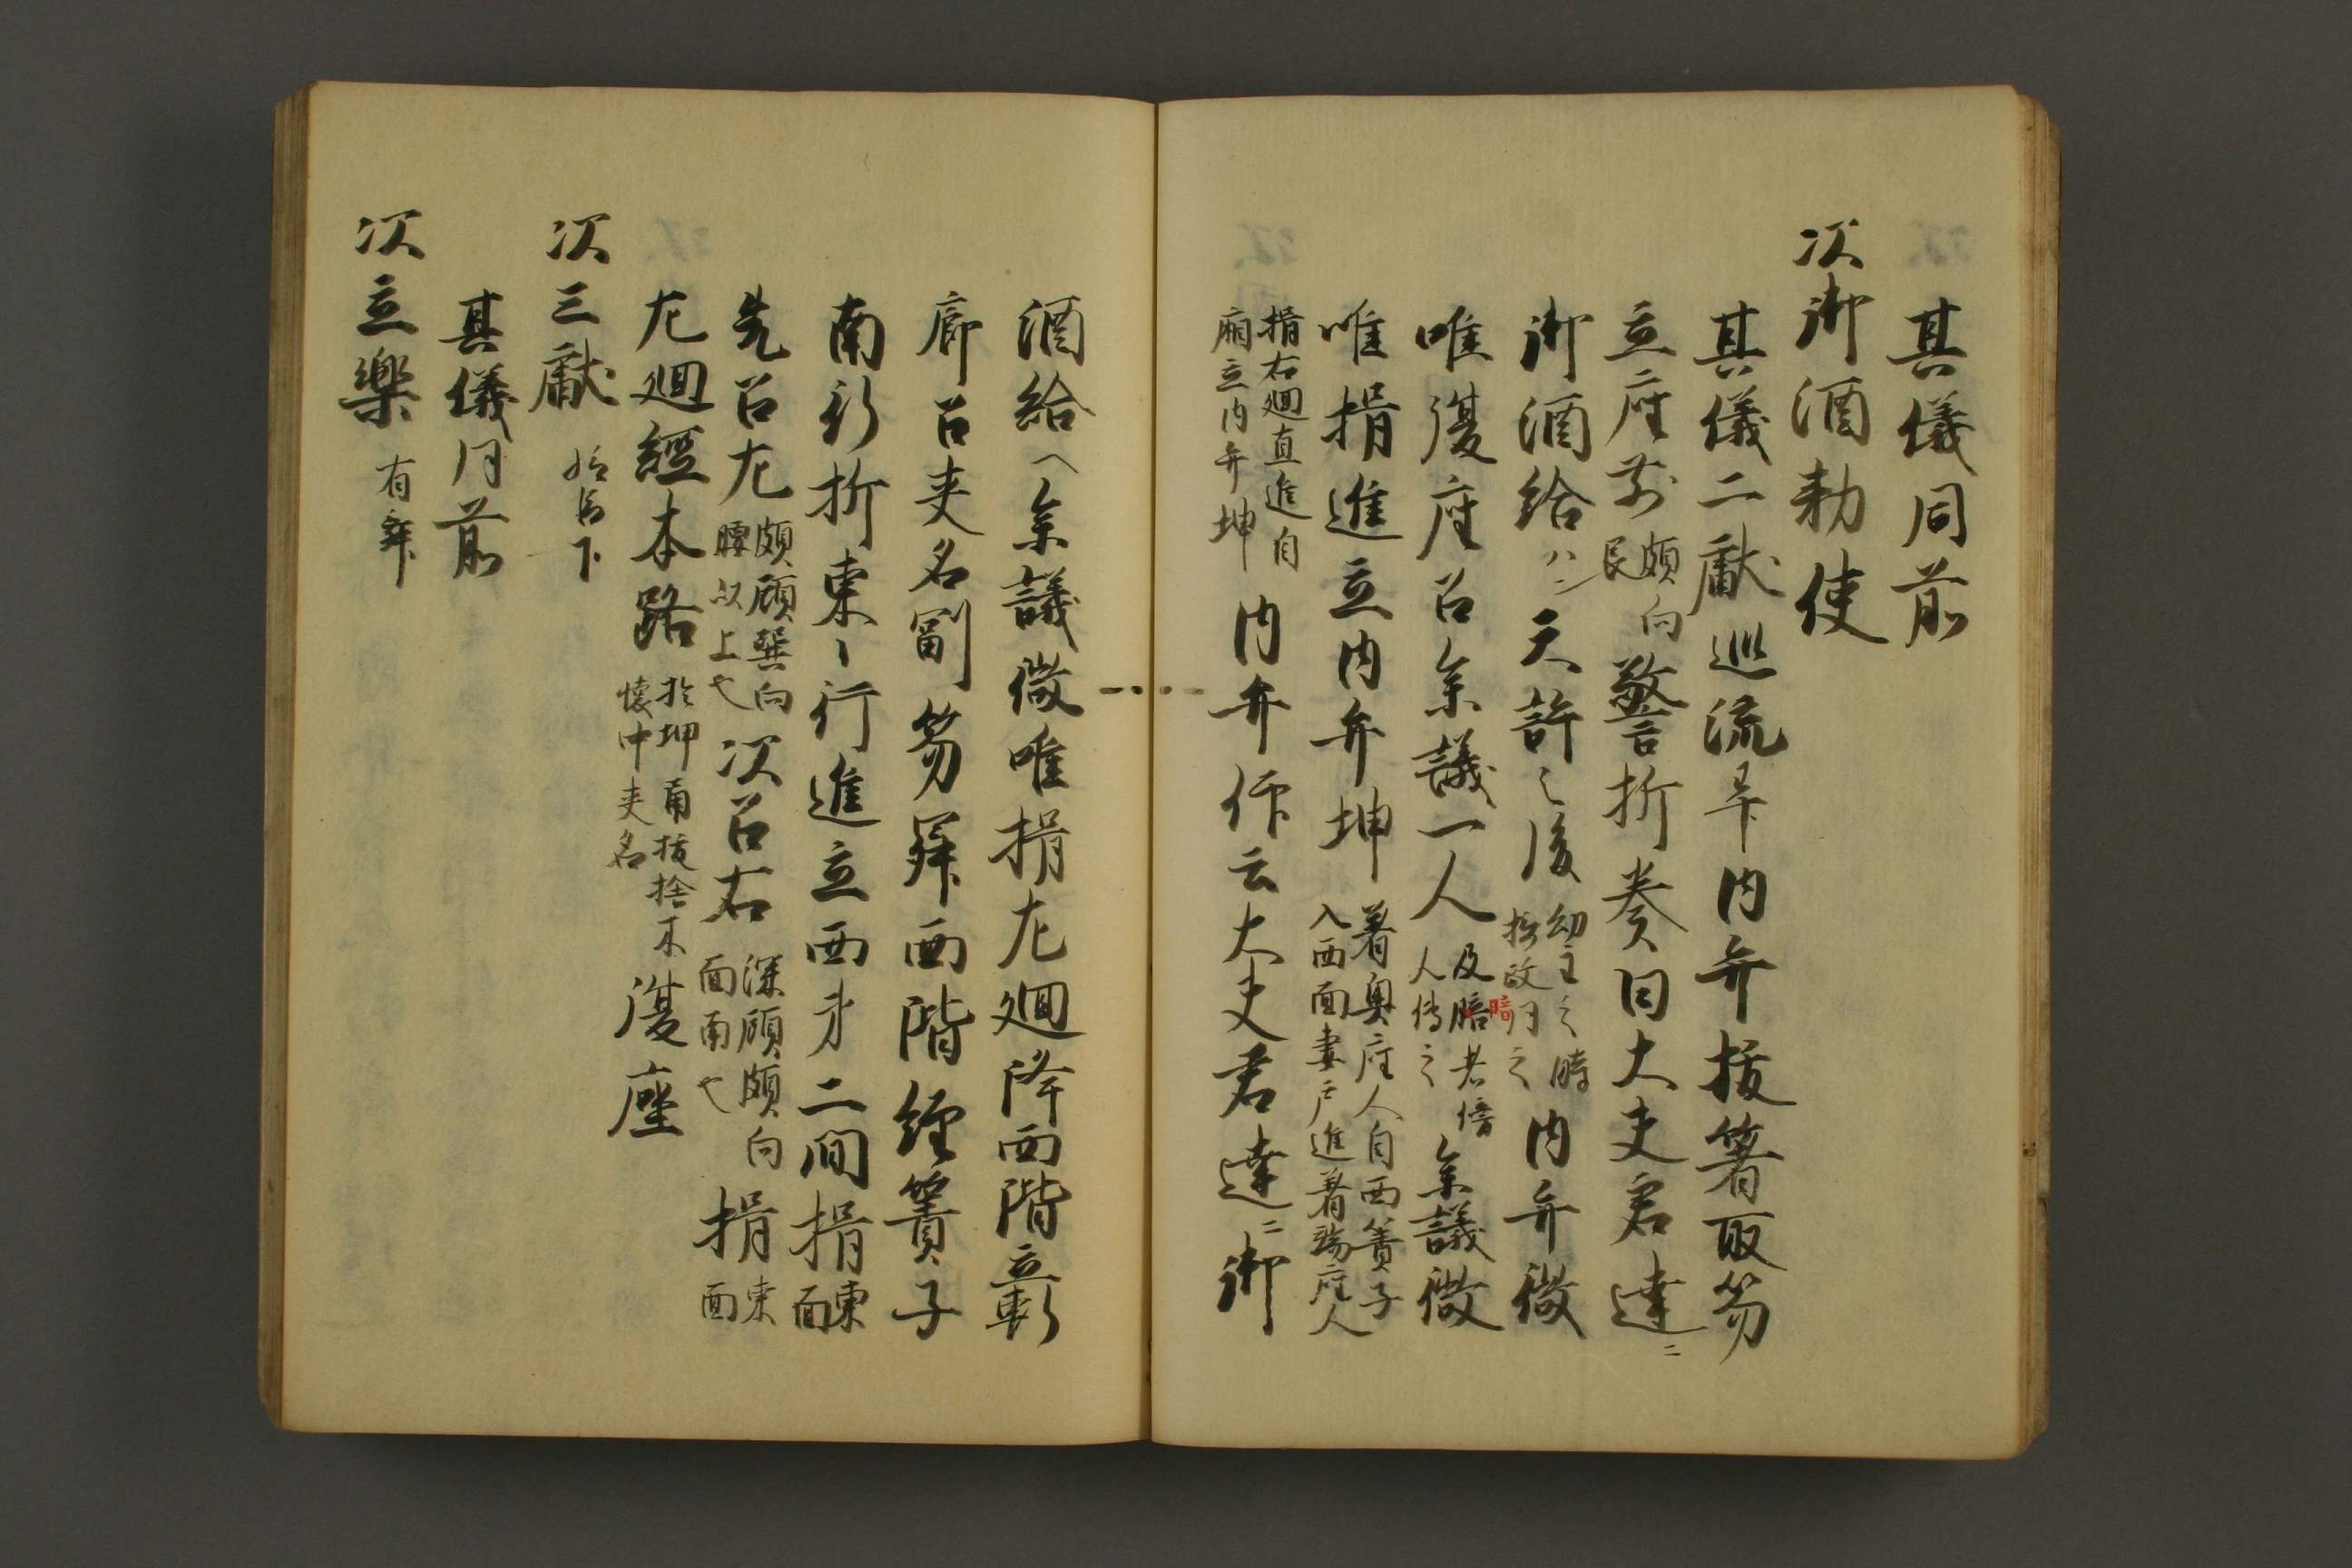 其儀同前
次御酒勅使
其儀二献巡流畢内弁抜箸取笏
立座前 頗向艮 警折奏曰大夫君達ニ
御酒給ハン天許之後 幼主之時揖政同之 内弁微
唯復座召参議一人 及暗者傍人傳之 参議微
暗
唯揖進立内弁坤 着奥座人自西簀子入西面妻戸進着端座人
揖右廻直進自廂立内弁坤 内弁仰云大夫君達ニ御
酒給ヘ参議微唯揖尤廻降西階立軒
廊召夾名副笏昇西階経簀子
南行折東々行進立西才二間揖 東面
先召尤 頗顧巽向腰以上也 次召右 深顧頗向面南也 揖 東面
尤廻經本路 於坤角抜捨木懐中夾名 復座
次三献
其儀同前
次立楽